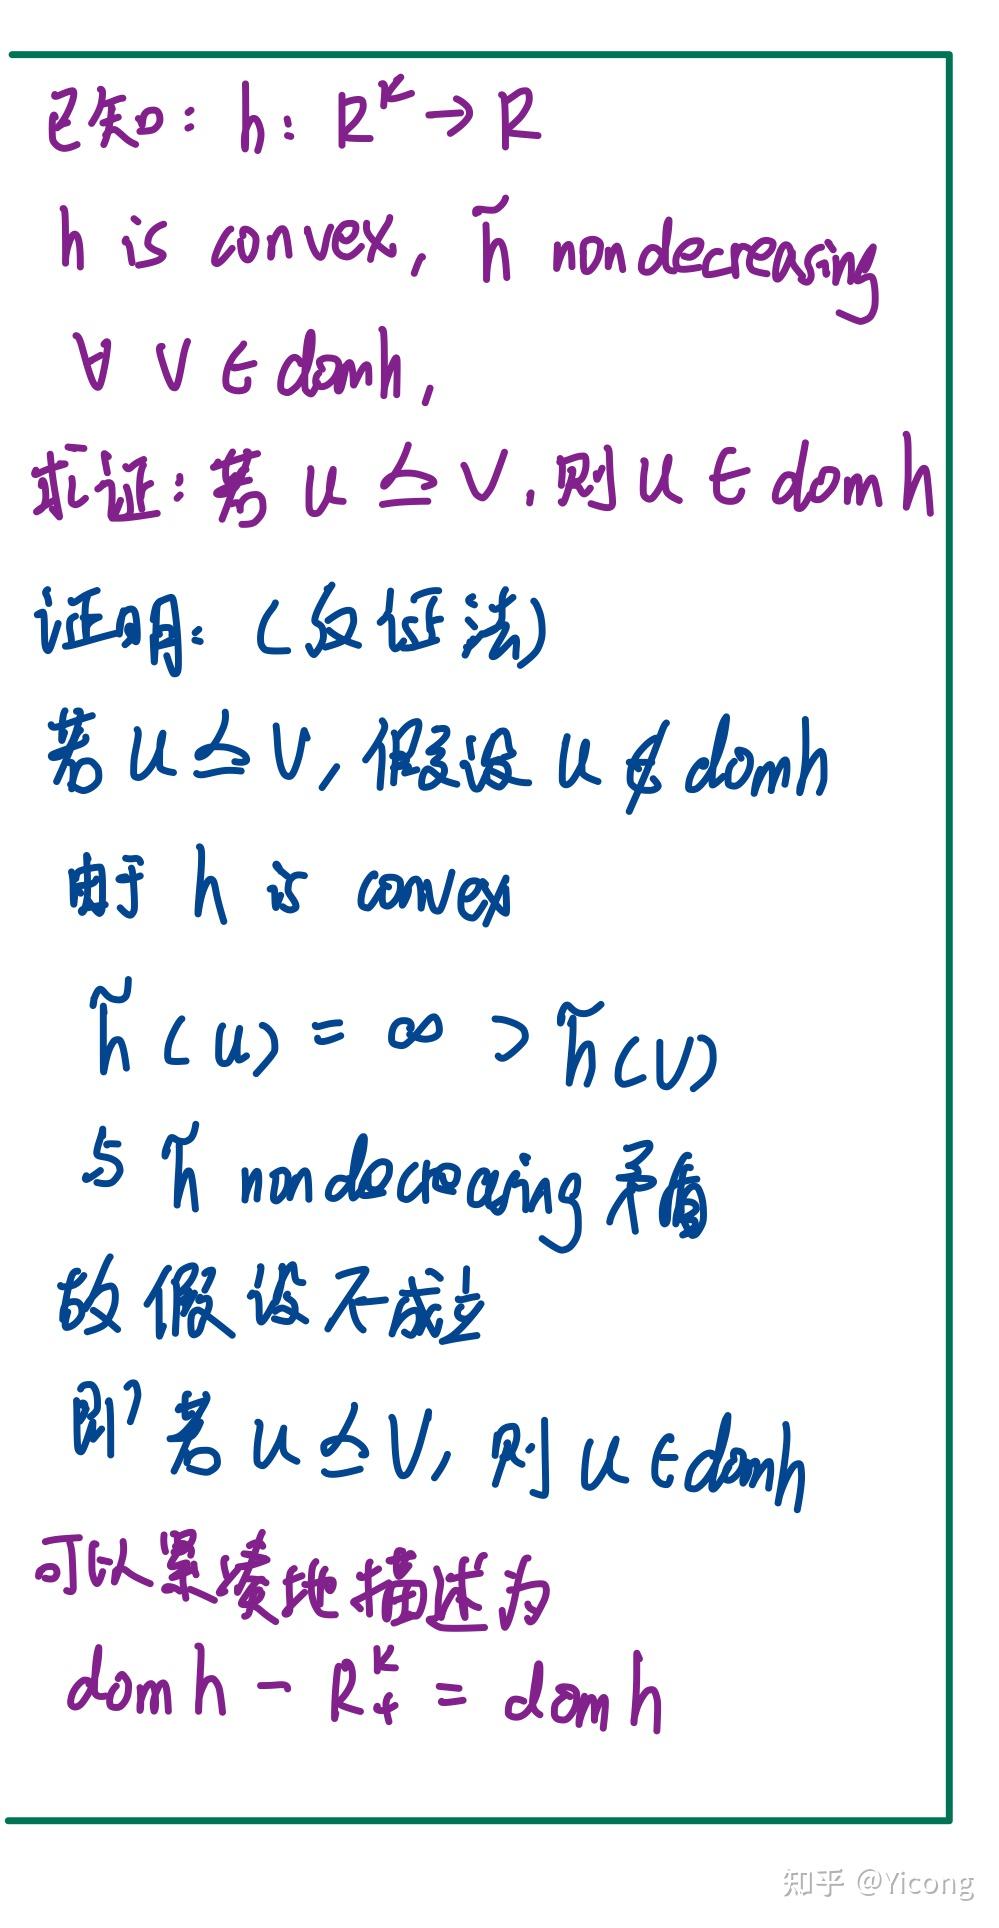 已知: h: R^k → R
h is convex, h̃ nondecreasing
∀ v ∈ domh,
求证: 若 u ⪯ v, 则 u ∈ dom h
证明: (反证法)
若 u ⪯ v, 假设 u ∉ domh
由于 h is convex
h̃(u) = ∞ > h̃(v)
与 h̃ nondecreasing 矛盾
故假设不成立
即若 u ⪯ v, 则 u ∈ domh
可以紧凑地描述为
dom h - R₊^k = dom h
知乎 @Yicong